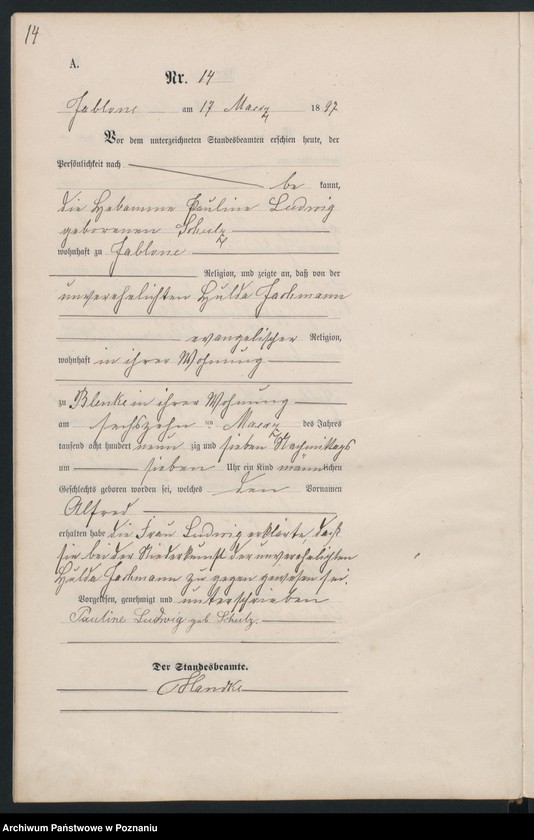 14
A.
Nr. 14
Jablone am 17 Maerz 1897
Vor dem unterzeichneten Standesbeamten erschien heute, der
Persönlichkeit nach
be kannt,
die Hebamme Pauline Ludwig
geborenen Schulz
wohnhaft zu Jablone
Religion, und zeigte an, daß von der
unverehelichten Hulda Jachmann
evangelischer Religion,
wohnhaft in ihrer Wohnung
zu Blenke in ihrer Wohnung
am sechszehn ten Maerz des Jahres
tausend acht hundert neun zig und sieben Nachmittags
um sieben Uhr ein Kind männlichen
Geschlechts geboren worden sei, welches den Vornamen
Alfred
erhalten habe die Frau Ludwig erklärte, daß
sie bei der Niederkunft der unverehelichten
Hulda Jachmann zu gegen gewesen sei.
Vorgelesen, genehmigt und unterschrieben
Pauline Ludwig geb Schulz.
Der Standesbeamte.
Archiwum Państwowe w Poznaniu